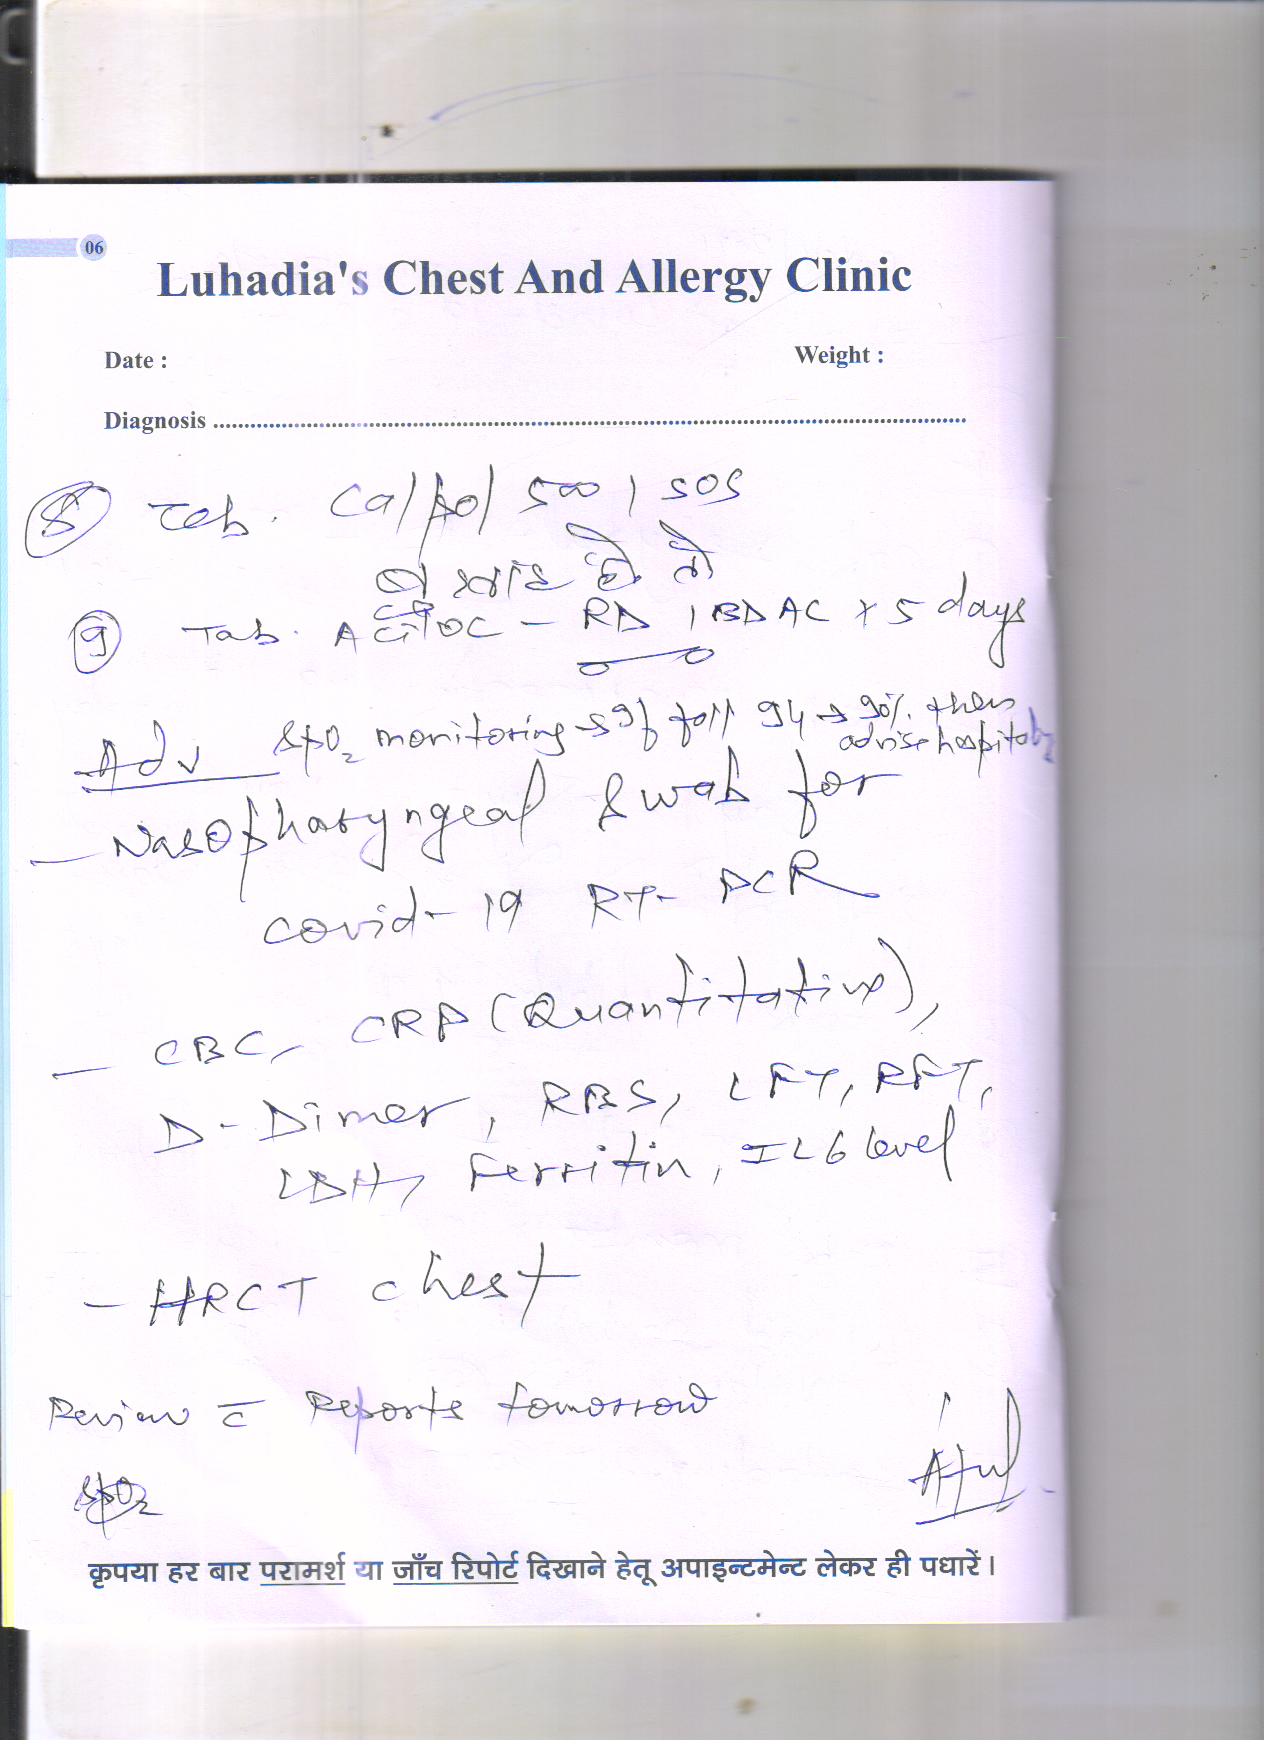 06
Luhadia's Chest And Allergy Clinic
Date : Weight :
Diagnosis
8 Tab. Calpol 500 1 SOS
बुखार हो तो
9 Tab. - RD 1 BD AC x 5 days
Adv SpO2 monitoring → If fall 94 → 90% then
advise hospital
- Nasopharyngeal Swab for
Covid-19 RT-PCR
- CBC, CRP (Quantitative),
D-Dimer, RBS, LFT, RFT,
LDH, Ferritin, IL6 level
- HRCT Chest
Review c̄ Reports tomorrow
SpO2
Atul
कृपया हर बार परामर्श या जाँच रिपोर्ट दिखाने हेतू अपाइन्टमेन्ट लेकर ही पधारें।